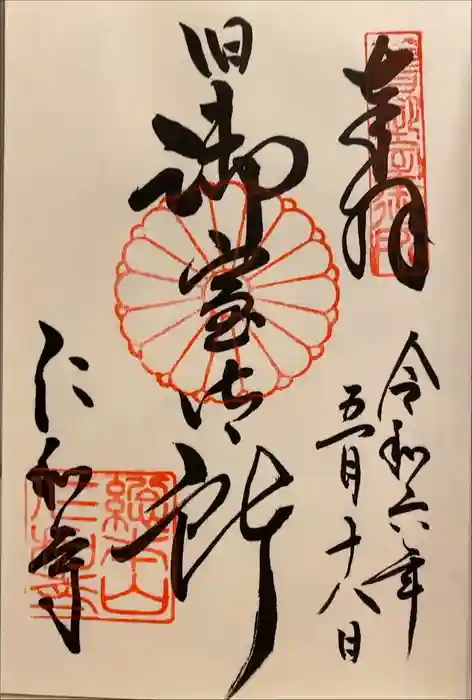 奉拝
令和六年
五月十八日
旧御室御所
仁和寺
総本山
仁和寺